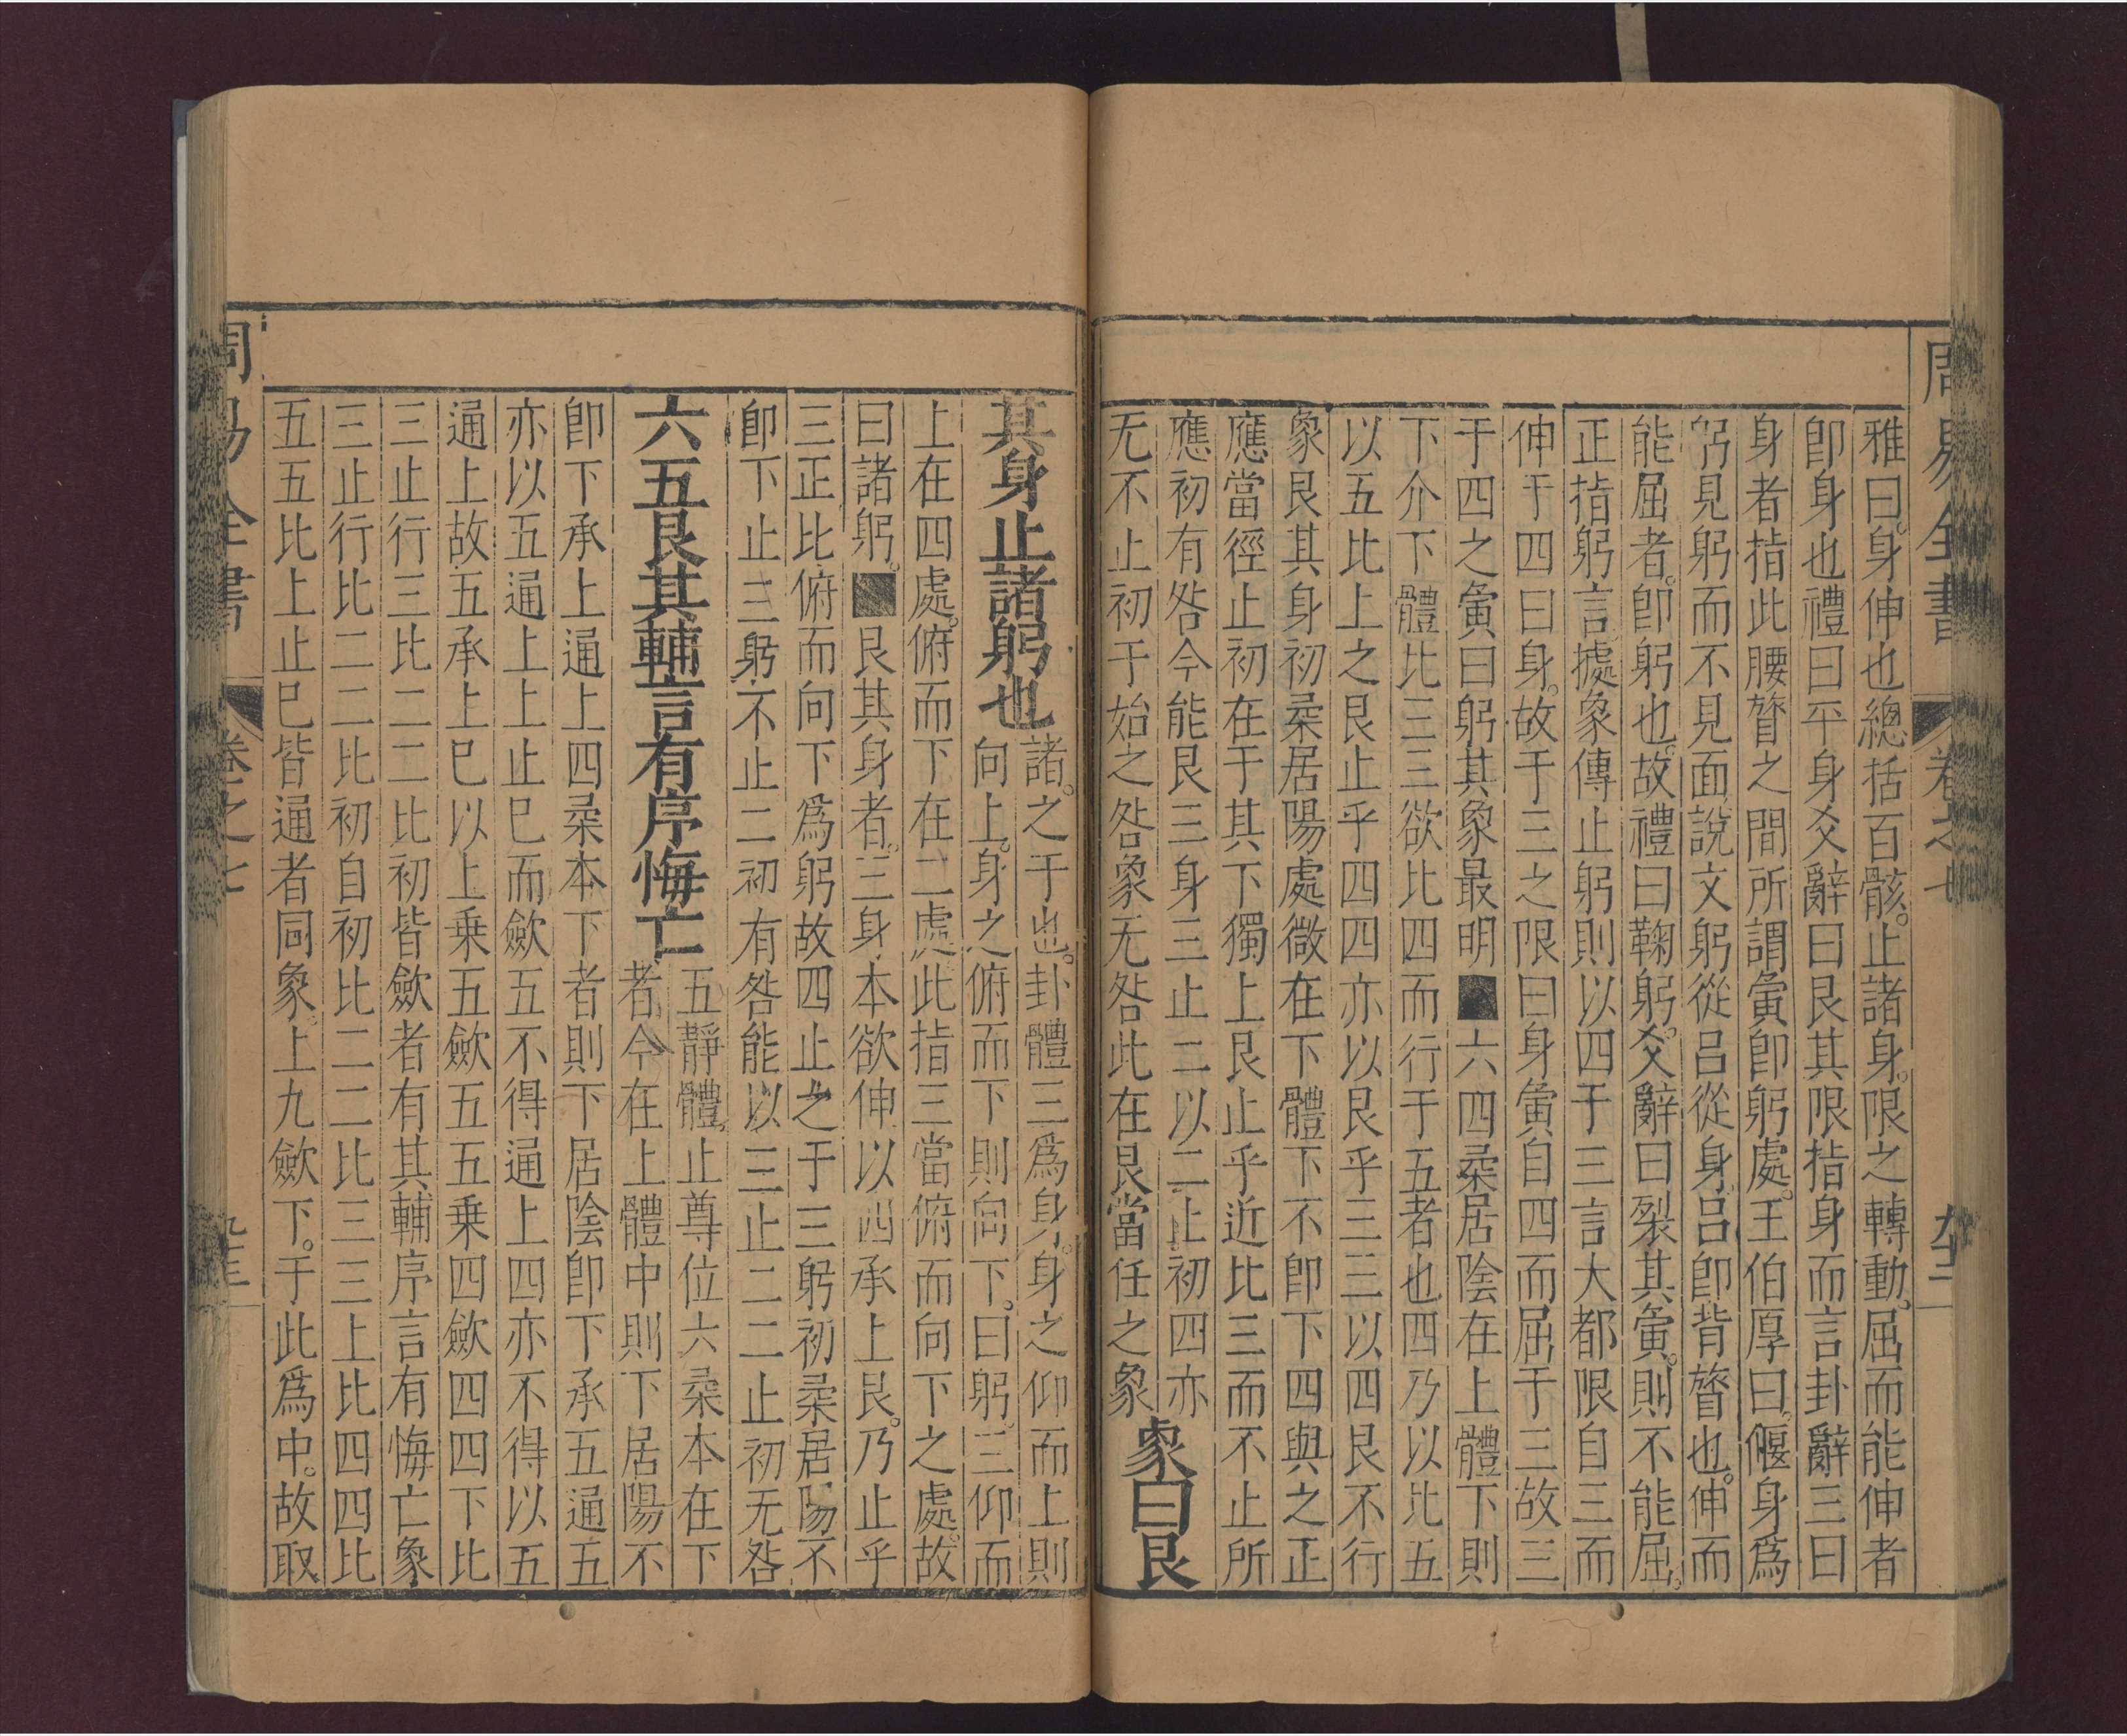 周易全書 卷之七 九十二
雅曰。身伸也總括百骸。止諸身。限之轉動。屈而能伸者
卽身也禮曰平身爻辭曰艮其限指身而言卦辭三曰
身者指此腰膂之間所謂夤卽躬處。王伯厚曰。偃身爲
躬見躬而不見面說文躬從呂從身。呂卽背膂也。伸而
能屈者。卽躬也。故禮曰鞠躬。爻辭曰裂其夤。則不能屈。
正指躬言據象傳止躬則以四于三言大都限自三而
伸于四曰身。故于三之限曰身夤自四而屈于三故三
于四之夤曰躬其象最明■六四桒居陰在上體下則
下介下體比三三欲比四而行于五者也四乃以比五
以五比上之艮止乎四四亦以艮乎三三以四艮不行
象艮其身初桒居陽處微在下體下不卽下四與之正
應當徑止初在于其下獨上艮止乎近比三而不止所
應初有咎今能艮三身三止二以二止初四亦
无不止初于始之咎象无咎此在艮當任之象象曰艮
其身止諸躬也諸。之于也。卦體三爲身。身之仰而上則
向上。身之俯而下則向下。曰躬。三仰而
上在四處。俯而下在二處此指三當俯而向下之處。故
曰諸躬。■艮其身者。三身本欲伸以四承上艮。乃止乎
三正比俯而向下爲躬故四止之于三躬初桒居陽不
卽下止三躬不止二初有咎能以三止二二止初无咎
六五艮其輔言有序悔亡五靜體。止尊位六桒本在下
者。今在上體中則下居陽不
卽下承上通上四桒本下者則下居陰卽下承五通五
亦以五通上上止巳而歛五不得通上四亦不得以五
通上故五承上巳以上乗五歛五五乗四歛四四下比
三止行三比二二比初皆歛者有其輔序言有悔亡象
三止行比二二比初自初比二二比三三上比四四比
五五比上止巳皆通者同象。上九歛下。于此爲中。故取
周易全書 卷之七 九十三